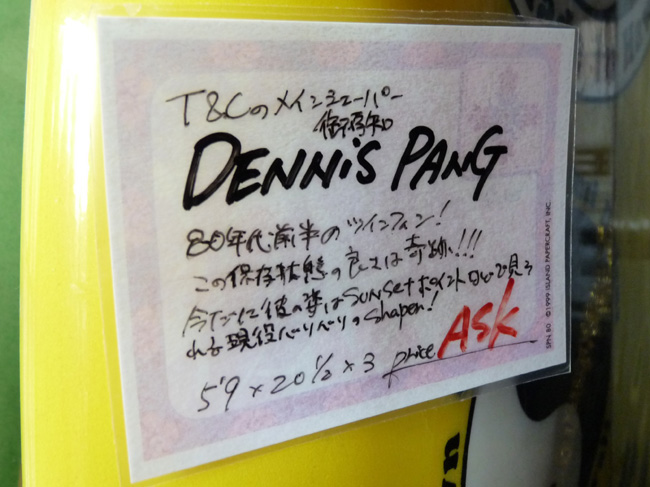 T&Cのメインシェーパー
御存知
DENNiS PANG
80年代前半のツインフィン!
この保存状態の良さは奇跡!!!
今だに彼の姿はSUNSETポイントなどで見ら
れる現役バリバリのshaper!
5'9 × 20 1/2 × 3 price ASK
SPN 80 ©1999 ISLAND PAPERCRAFT, INC.